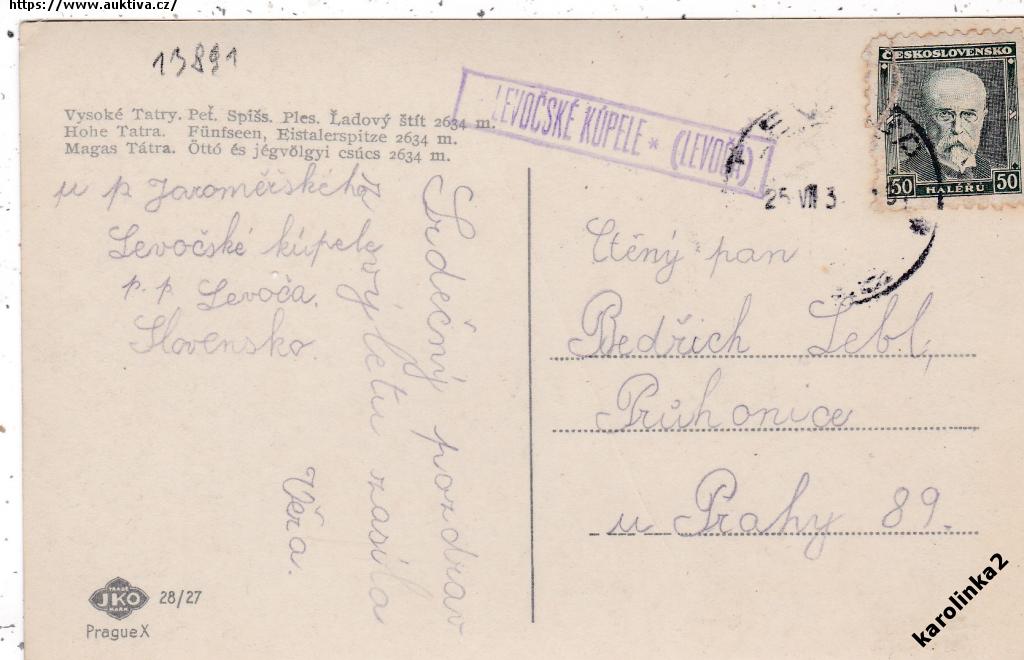 https://www.auktiva.cz/
13891
Vysoké Tatry. Peť. Spišs. Ples. Ľadový štít 2634 m.
Hohe Tatra. Fünfseen, Eistalerspitze 2634 m.
Magas Tátra. Öttó és jégvölgyi csúcs 2634 m.
LEVOČSKÉ KÚPELE * (LEVOČA)
25 VII 3
ČESKOSLOVENSKO
50 HALÉŘŮ 50
u p Jaroměrského
Levočské kúpele
p. p Levoča.
Slovensko.
Srdečný pozdrav
z výletu zasílá
Věra.
Ctěný pan
Bedřich Lebl,
Průhonice
u Prahy 89.
TRADE
JKO
MARK
28/27
Prague X
karolinka2